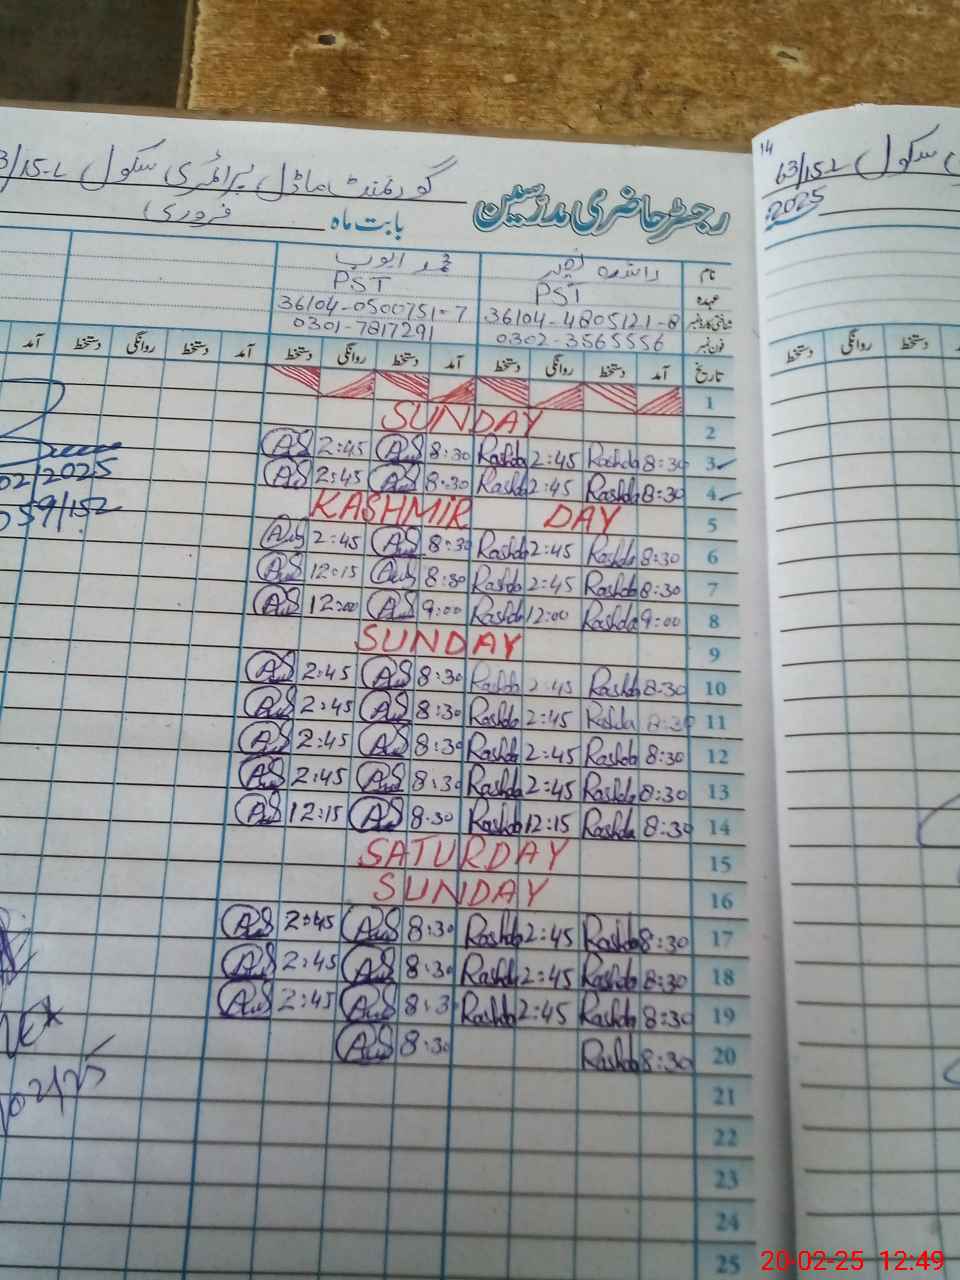 گورنمنٹ ماڈل پرائمری سکول 63/15-L
رجسٹر حاضری مدرسین
بابت ماہ فروری
نام راشدہ محمد ایوب
عہدہ PST PST
شناختی کارڈ نمبر 36104-4805121-8 36104-0500751-7
فون نمبر 0302-3565556 0301-7817291
تاریخ آمد دستخط روانگی دستخط آمد دستخط روانگی دستخط آمد دستخط روانگی دستخط آمد
1
2 SUNDAY
3 8:30 Rashda 2:45 Rashda 8:30 AS 2:45 AS
4 8:30 Rashda 2:45 Rashda 8:30 AS 2:45 AS
5 KASHMIR DAY
6 8:30 Rashda 2:45 Rashda 8:30 AS 2:45 AS
7 8:30 Rashda 2:45 Rashda 8:30 AS 12:15 AS
8 9:00 Rashda 12:00 Rashda 9:00 AS 12:00 AS
9 SUNDAY
10 8:30 Rashda 2:45 Rashda 8:30 AS 2:45 AS
11 8:30 Rashda 2:45 Rashda 8:30 AS 2:45 AS
12 8:30 Rashda 2:45 Rashda 8:30 AS 2:45 AS
13 8:30 Rashda 2:45 Rashda 8:30 AS 2:45 AS
14 8:30 Rashda 12:15 Rashda 8:30 AS 12:15 AS
15 SATURDAY
16 SUNDAY
17 8:30 Rashda 2:45 Rashda 8:30 AS 2:45 AS
18 8:30 Rashda 2:45 Rashda 8:30 AS 2:45 AS
19 8:30 Rashda 2:45 Rashda 8:30 AS 2:45 AS
20 8:30 Rashda 8:30 AS
21
22
23
24
25
02/2025
059/152
14
سکول 63/15-L
2025
دستخط روانگی دستخط
20-02-25 12:49